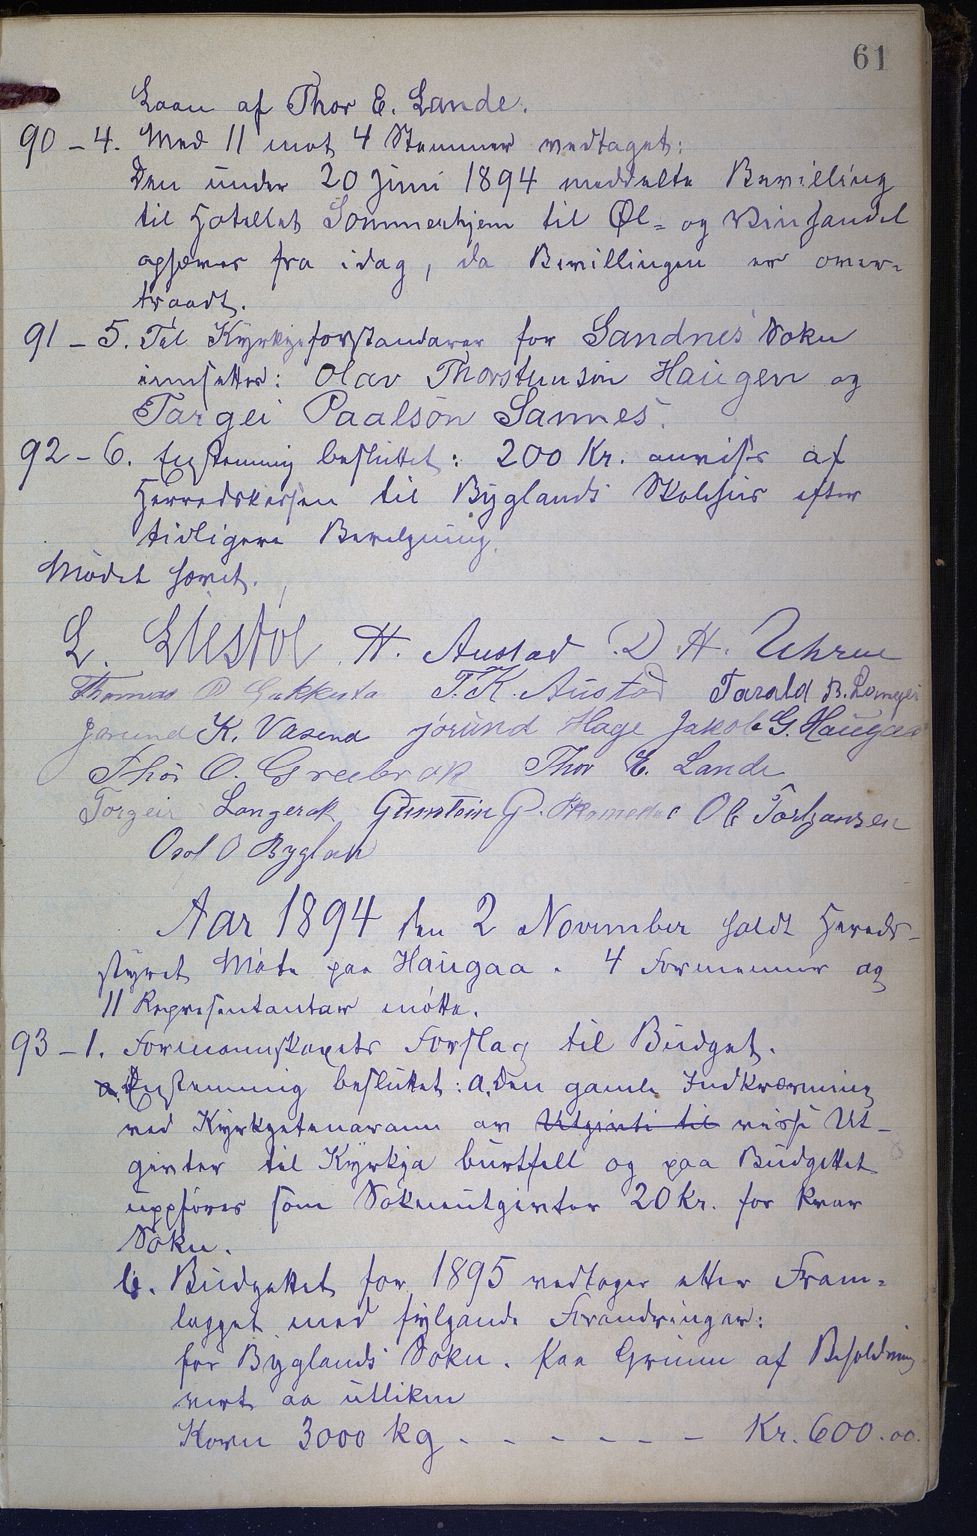 61
Laan af Thor E. Lande.
90 – 4. Med 11 mot 4 Stemmer vedtaget:
Den under 20 Juni 1894 meddelte Bevilling
til Hotellet Sommerhjem til Øl- og Vinhandel
ophæves fra idag, da Bevillingen er over-
traadt.
91 – 5. Til Kyrkjeforstandarar for Sandnes Sokn
innsettes: Olav Thorstunson Haugen og
Targei Paalson Sannes.
92 – 6. Enstemmig besluttet: 200 Kr. anvises af
Herredskassen til Byglands Skolehus efter
tidligere Bevilgning.
Mødet hævet.
L. Liestøl H. Austad D. H. Uhrue
Thomas D T. K. Austad Tarald B.
Jorund K. Vasend Jørund Hage Jakob G. Haugaa
Thor O. Greibrok Thor E. Lande
Torgeir Langerak Gunstein G. Ole Torbjørnsen
O Byglan
Aar 1894 den 2 November holdt Hereds-
styret Møte paa Haugaa. 4 Formenner og
11 Representantar møtte.
93 – 1. Formannskapets Forslag til Budget.
Enstemmig besluttet: a. Den gamle Indkrævning
ved Kyrkjetenarann av Utgivti til visse Ut-
givter til Kyrkja burtfell og paa Budgettet
uppføres som Sokneutgivter 20 Kr. for kvar
Sokn.
b. Budgettet for 1895 vedtoges etter Fram-
legget med fylgande Forandringar:
for Byglands Sokn. Paa Grunn af Beholdning
vert aa utlikne
Korn 3000 kg - - - - - - - Kr. 600.00.